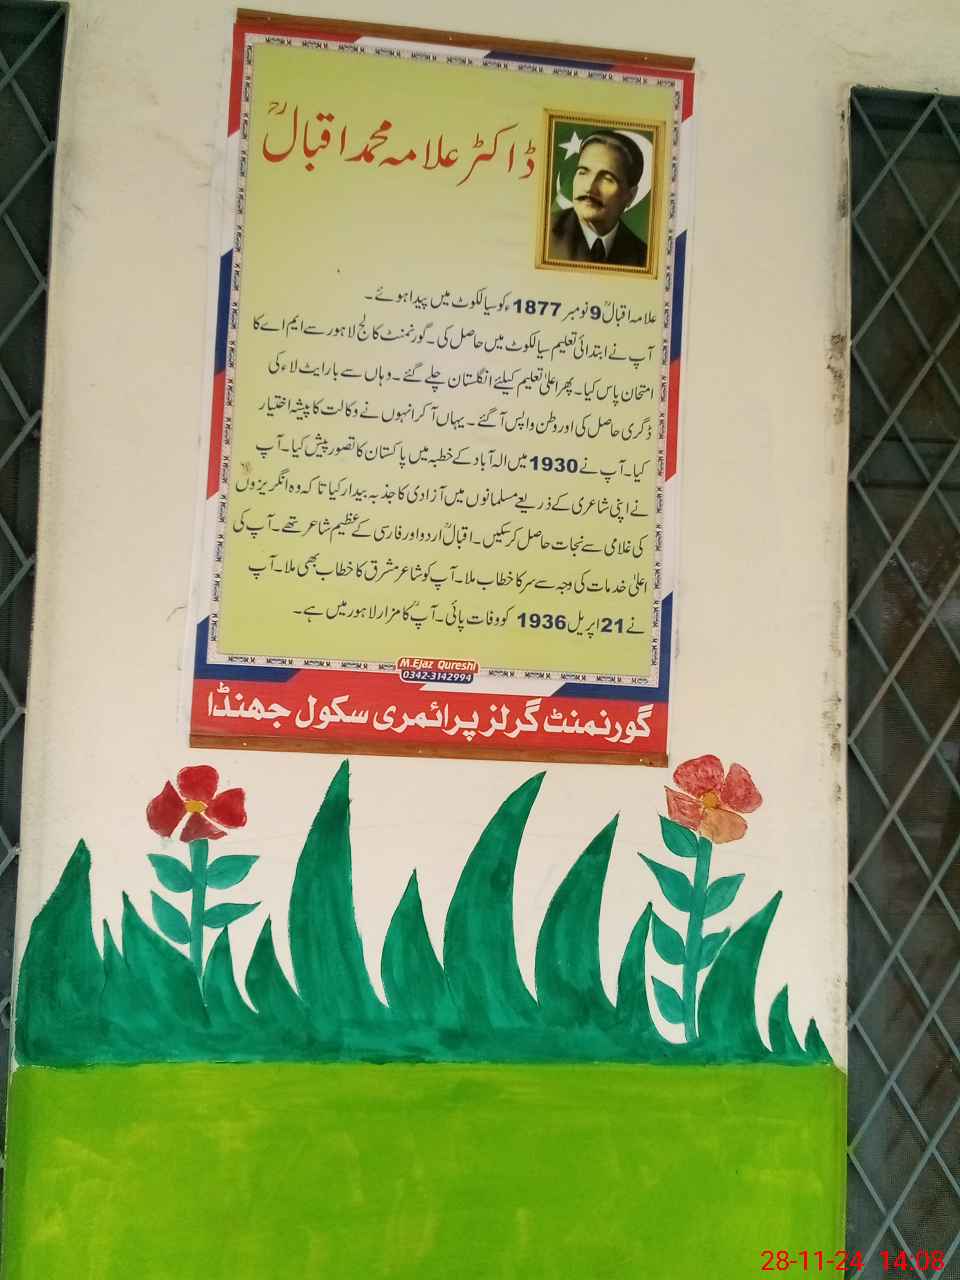 ڈاکٹر علامہ محمد اقبالؒ
علامہ اقبالؒ 9 نومبر 1877ء کو سیالکوٹ میں پیدا ہوئے۔
آپ نے ابتدائی تعلیم سیالکوٹ میں حاصل کی۔ گورنمنٹ کالج لاہور سے ایم اے کا
امتحان پاس کیا۔ پھر اعلیٰ تعلیم کیلئے انگلستان چلے گئے۔ وہاں سے بار ایٹ لاء کی
ڈگری حاصل کی اور وطن واپس آ گئے۔ یہاں آ کر انہوں نے وکالت کا پیشہ اختیار
کیا۔ آپ نے 1930 میں الہ آباد کے خطبہ میں پاکستان کا تصور پیش کیا۔ آپ
نے اپنی شاعری کے ذریعے مسلمانوں میں آزادی کا جذبہ بیدار کیا تا کہ وہ انگریزوں
کی غلامی سے نجات حاصل کر سکیں۔ اقبالؒ اردو اور فارسی کے عظیم شاعر تھے۔ آپ کی
اعلیٰ خدمات کی وجہ سے سر کا خطاب ملا۔ آپ کو شاعر مشرق کا خطاب بھی ملا۔ آپ
نے 21 اپریل 1936 کو وفات پائی۔ آپؒ کا مزار لاہور میں ہے۔
M.Ejaz Qureshi
0342-3142994
گورنمنٹ گرلز پرائمری سکول جھنڈا
28-11-24 14:08